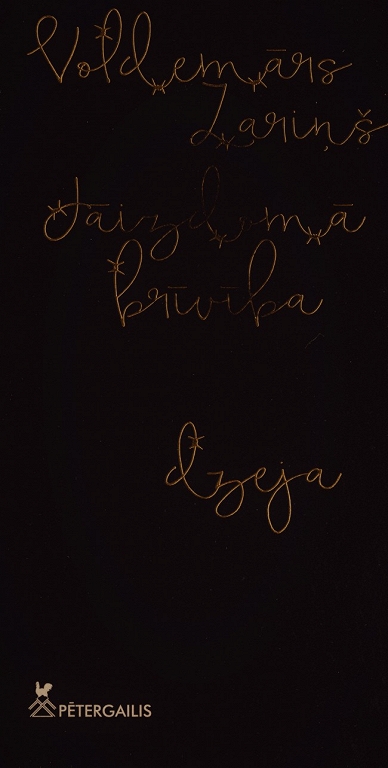 Voldemārs
Zariņš
Jāizdomā
brīvība
dzeja
PĒTERGAILIS